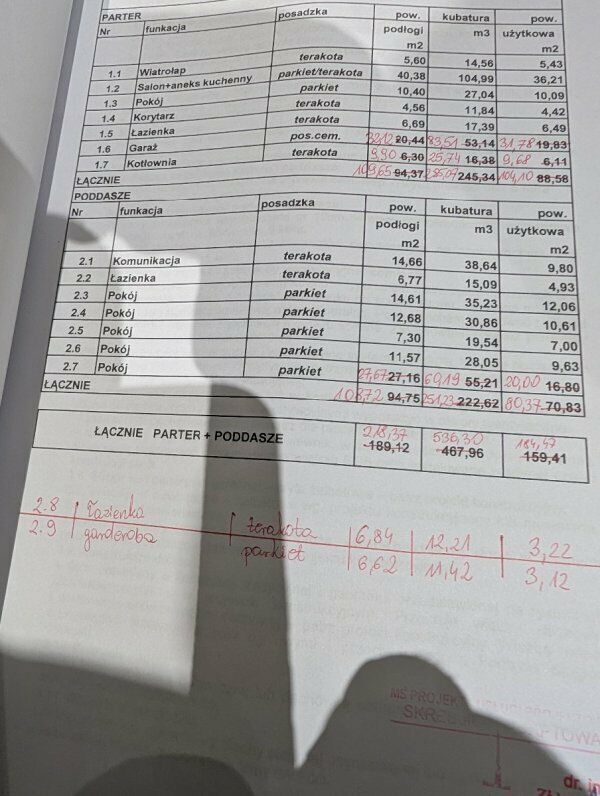 PARTER
Nr funkacja posadzka pow. podłogi m2 kubatura m3 pow. użytkowa m2
1.1 Wiatrołap terakota 5,60 14,56 5,43
1.2 Salon+aneks kuchenny parkiet/terakota 40,38 104,99 36,21
1.3 Pokój parkiet 10,40 27,04 10,09
1.4 Korytarz terakota 4,56 11,84 4,42
1.5 Łazienka terakota 6,69 17,39 6,49
1.6 Garaż pos.cem. 32,12 20,44 83,51 53,14 31,78 19,83
1.7 Kotłownia terakota 9,90 6,30 25,74 16,38 9,68 6,11
ŁĄCZNIE 109,65 94,37 285,07 245,34 104,10 88,58
PODDASZE
Nr funkacja posadzka pow. podłogi m2 kubatura m3 pow. użytkowa m2
2.1 Komunikacja terakota 14,66 38,64 9,80
2.2 Łazienka terakota 6,77 15,09 4,93
2.3 Pokój parkiet 14,61 35,23 12,06
2.4 Pokój parkiet 12,68 30,86 10,61
2.5 Pokój parkiet 7,30 19,54 7,00
2.6 Pokój parkiet 11,57 28,05 9,63
2.7 Pokój parkiet 27,67 27,16 60,19 55,21 20,00 16,80
ŁĄCZNIE 108,72 94,75 251,23 222,62 80,37 70,83
ŁĄCZNIE PARTER + PODDASZE 218,37 189,12 536,30 467,96 184,47 159,41
2.8 łazienka terakota 6,84 12,21 3,22
2.9 garderoba parkiet 6,62 11,42 3,12
MS PROJEK
dr. in